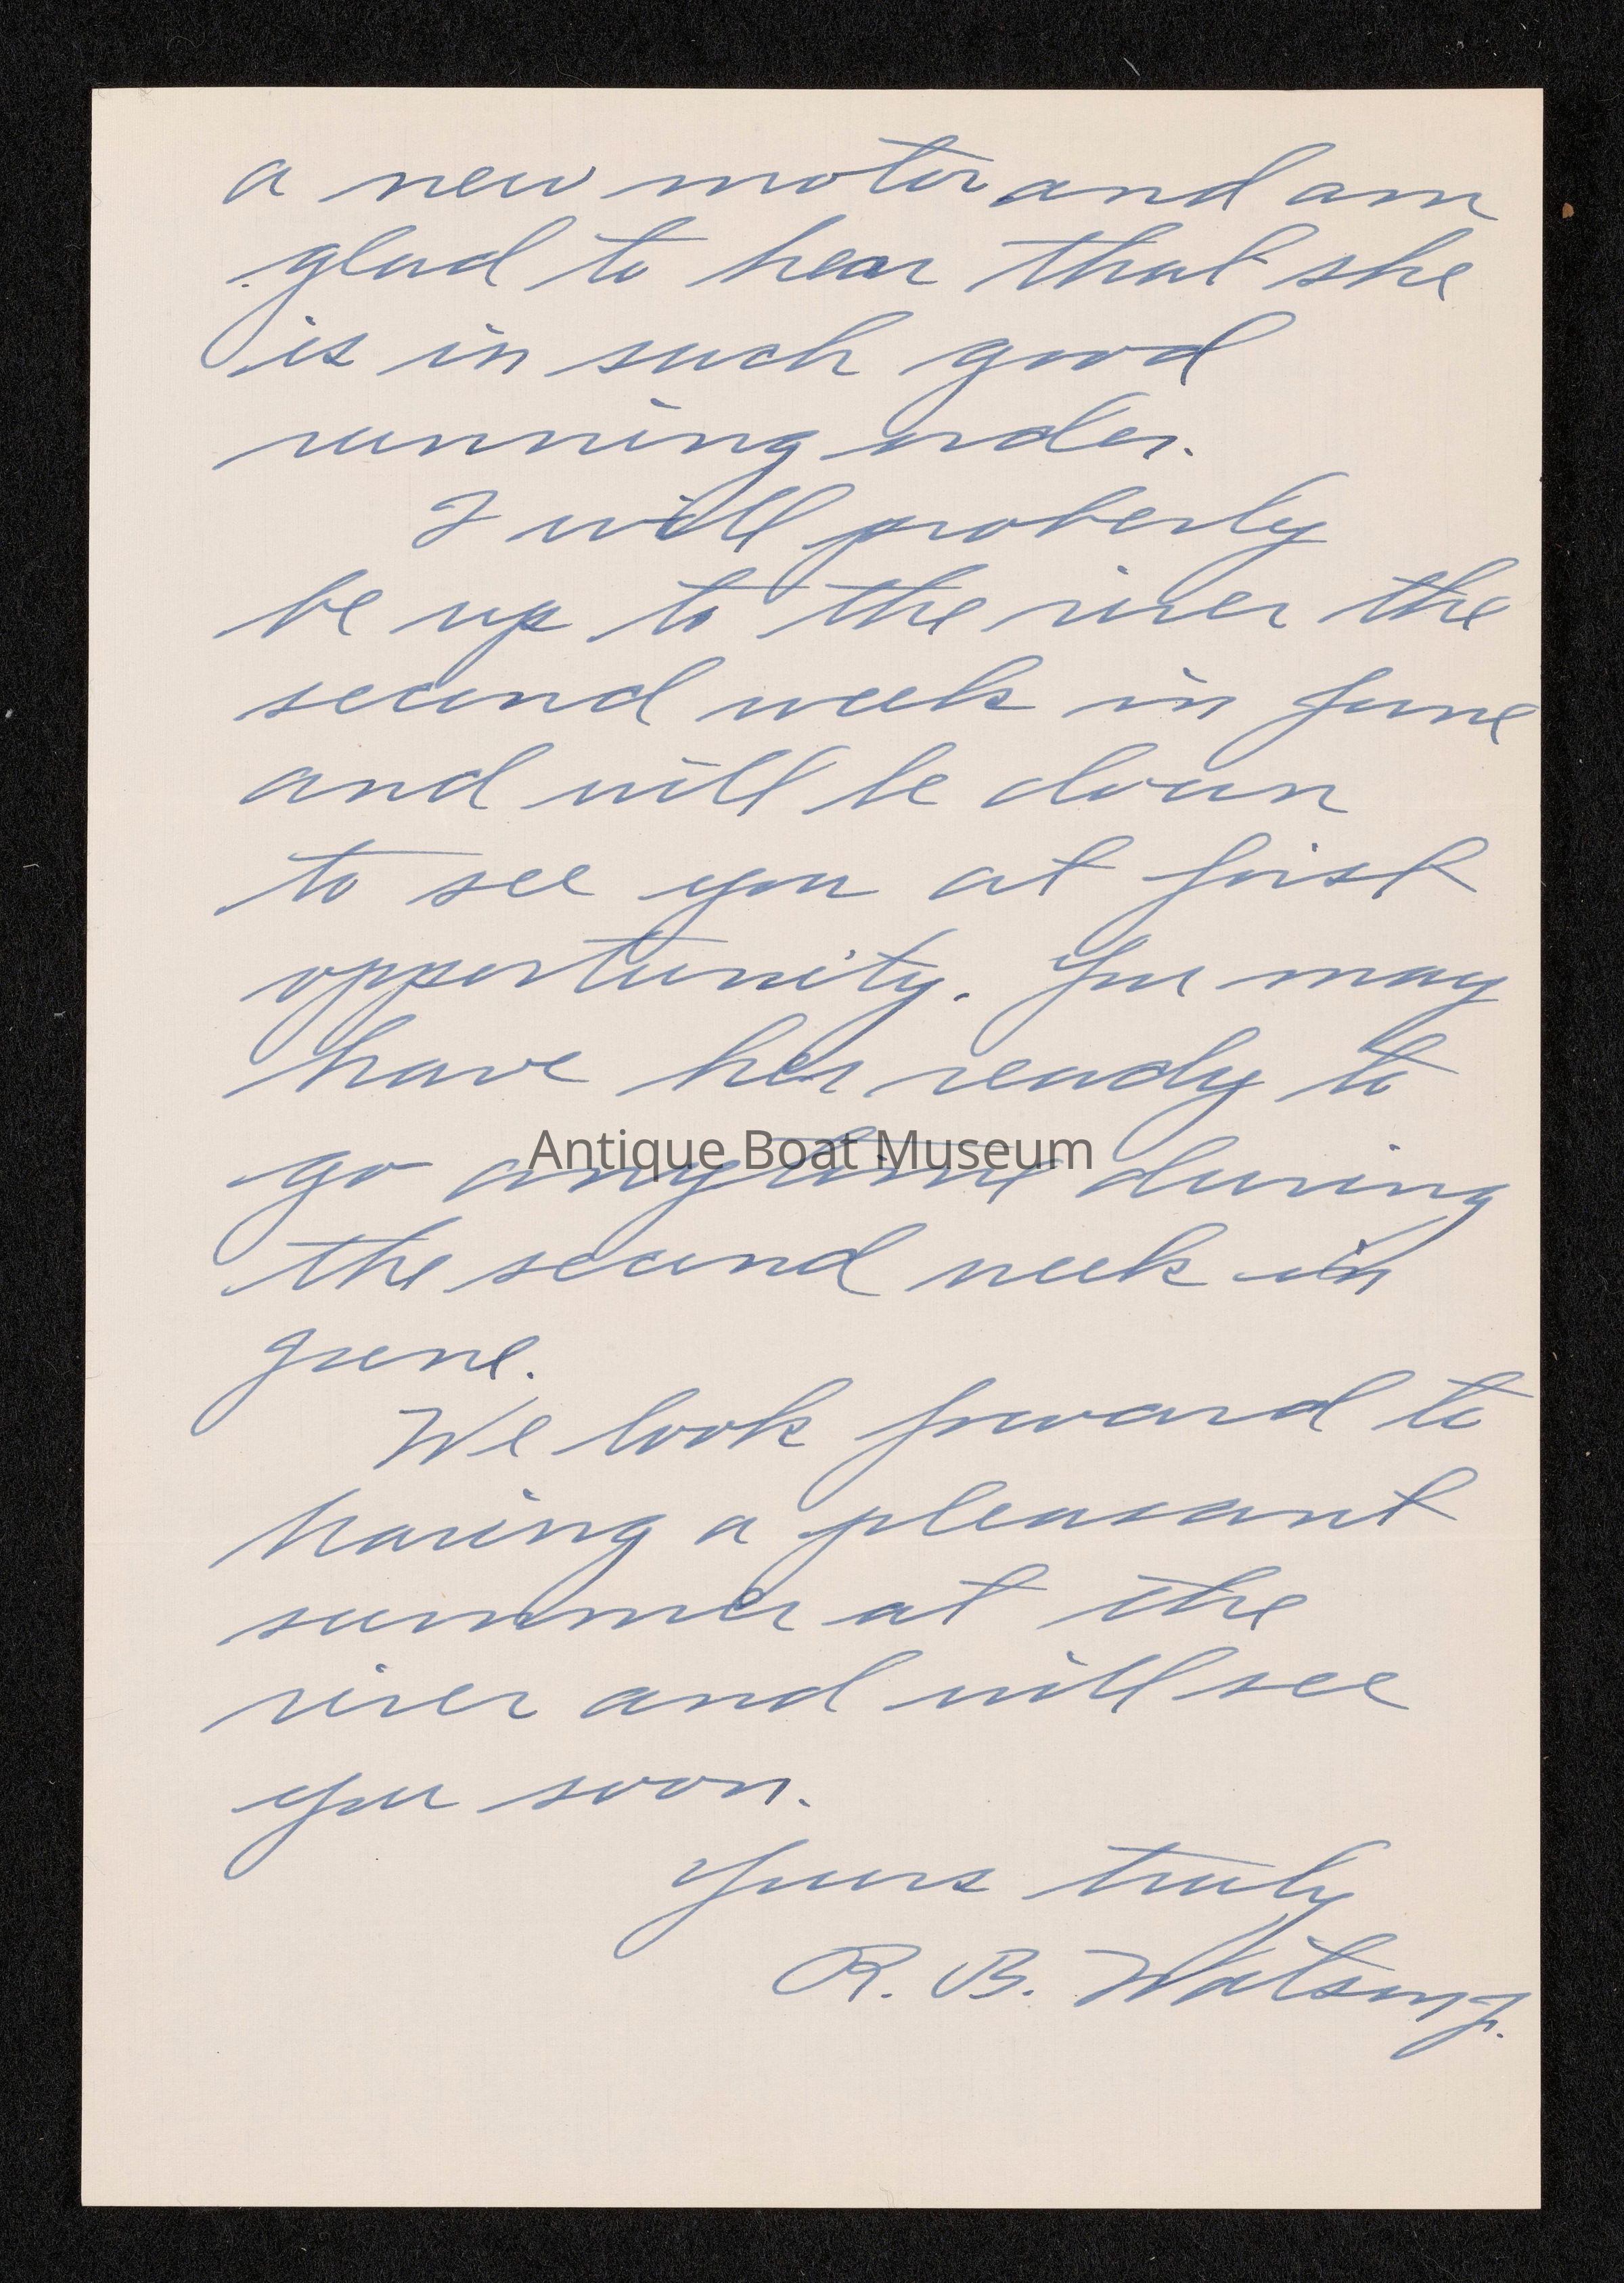 a new motor and am
glad to hear that she
is in such good
running order.
I will proberly
be up to the river the
second week in June
and will be down
to see you at first
opportunity. You may
have her ready to
Antique Boat Museum
go anytime during
the second week in
June.
We look forward to
having a pleasant
summer at the
river and will see
you soon.
Yours truly
R. B. Watson Jr.